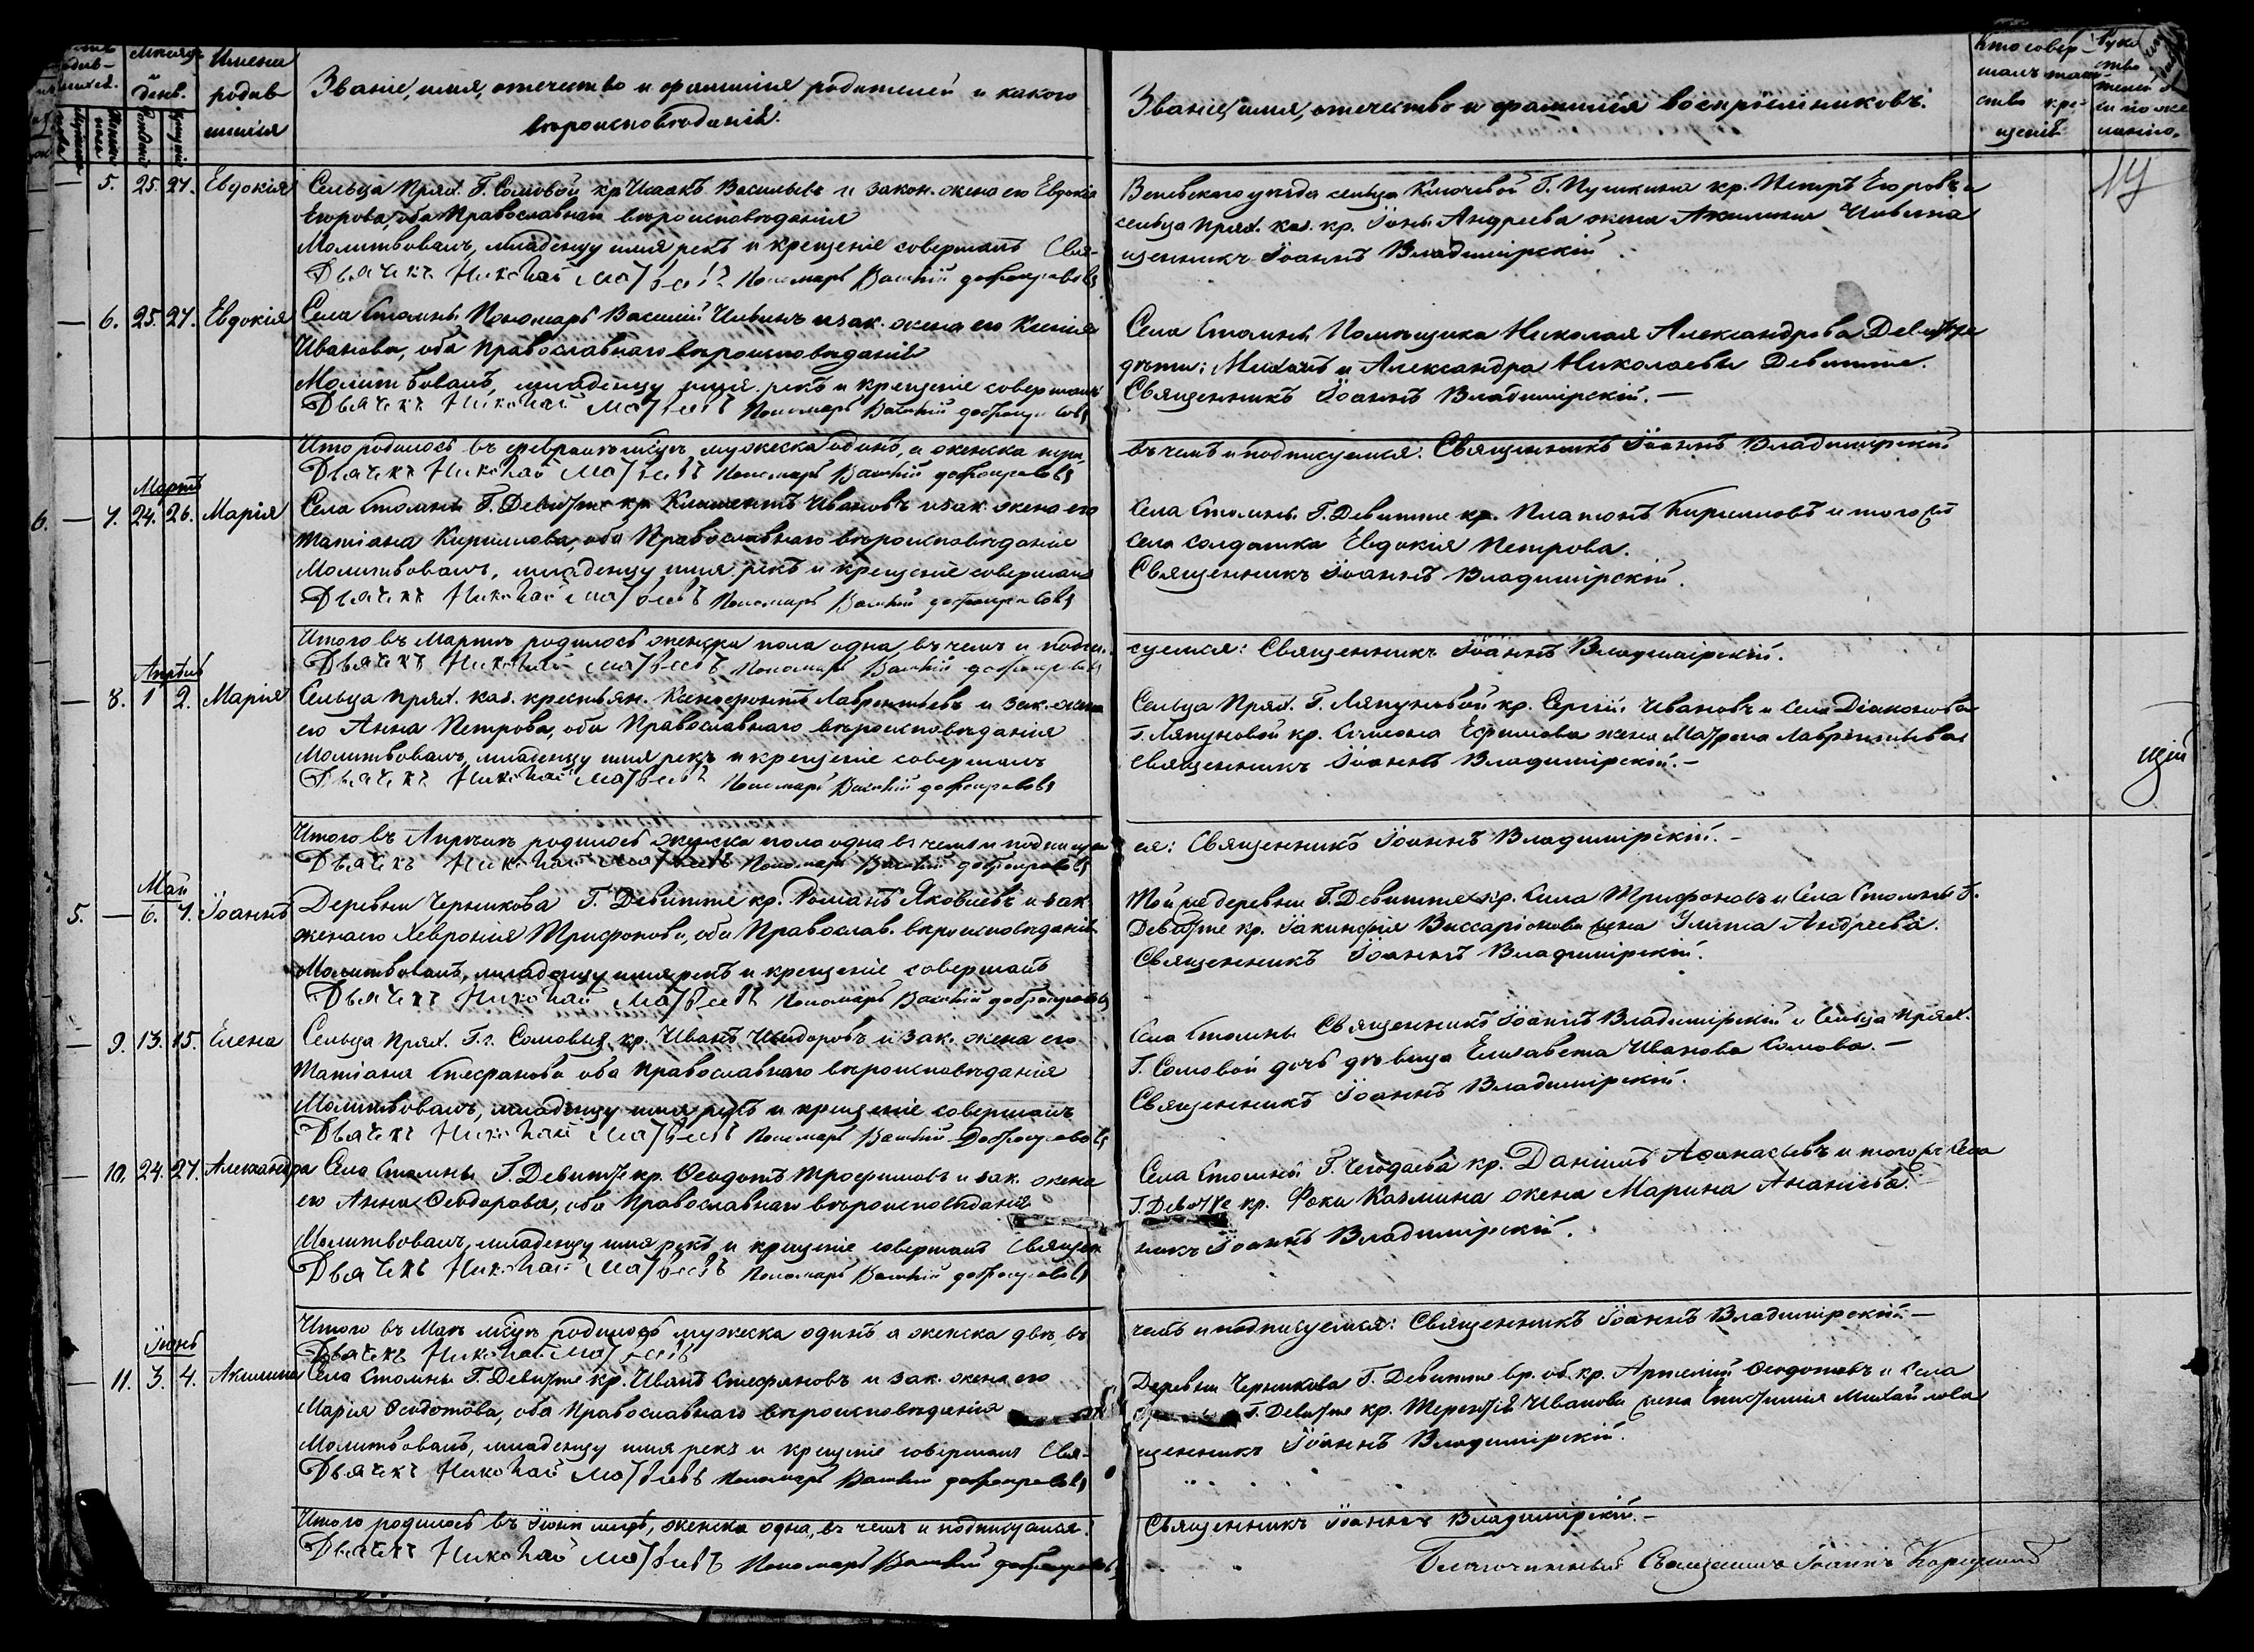 Мѣсяцъ и день.
Имена родившихся
Званіе, имя, отечество и фамилія родителей и какого
вѣроисповѣданія.
Званіе, имя, отечество и фамилія воспріемниковъ.
Кто совершалъ таинство крещенія
— 5. 25. 27. Евдокія
Сельца Прях. Г. Сомовой кр. Исаакъ Васильевъ и закон. жена его Евдокія
Егорова, оба Православнаго вѣроисповѣданія
Молитвовалъ, младенцу имя рекъ и крещеніе совершалъ Свя-
Дьячекъ Николай Матвѣевъ Пономарь Василій
сельца Ключевой Г. Пушкина кр. Петръ Егоровъ и
сельца Прях. каз. кр. Іоны Андреева жена Акилина
щенникъ Іоаннъ Владимірскій
— 6. 25. 27. Евдокія
Села Стомны Пономарь Василій Ильинъ и зак. жена его Ксенія
Иванова, оба Православнаго вѣроисповѣданія
Молитвовалъ, младенцу имя рекъ и крещеніе совершалъ
Дьячекъ Николай Матвѣевъ Пономарь Василій
Села Стомны Помѣщика Николая Александрова Девитте
дѣти: Михаилъ и Александра Николаевы Девитте.
Священникъ Іоаннъ Владимірскій. —
Итого родилось въ февралѣ мѣсяцѣ мужеска одинъ, а женска три,
Дьячекъ Николай Матвѣевъ Пономарь Василій
въ чемъ и подписуемся: Священникъ Іоаннъ Владимірскій
Мартъ
6. — 7. 24. 26. Марія
Села Стомны Г. Девитте кр. Климентъ Ивановъ и зак. жена его
Татіана Кириллова, оба Православнаго вѣроисповѣданія
Молитвовалъ, младенцу имя рекъ и крещеніе совершалъ
Дьячекъ Николай Матвѣевъ Пономарь Василій
Села Стомны Г. Девитте кр. Платонъ Кирилловъ и того же
села солдатка Евдокія Петрова.
Священникъ Іоаннъ Владимірскій.
Итого въ Мартѣ родилось женска пола одна въ чемъ и подпи-
Дьячекъ Николай Матвѣевъ Пономарь Василій
суемся: Священникъ Іоаннъ Владимірскій.
Апрѣль
— 8. 1 2. Марія
Сельца Прях. каз. крестьян. Ксенофонтъ Лаврентьевъ и зак. жена
его Анна Петрова, оба Православнаго вѣроисповѣданія
Молитвовалъ, младенцу имя рекъ и крещеніе совершалъ
Дьячекъ Николай Матвѣевъ Пономарь Василій
Сельца Прях. Г. Ляпуновой кр. Сергій Ивановъ и села Діаконова
Г. Ляпуновой кр. Ефимова жена Матрона Лаврентьева
Священникъ Іоаннъ Владимірскій. —
щій
Итого въ Апрѣлѣ родилось женска пола одна въ чемъ и подписуем
Дьячекъ Николай Матвѣевъ Пономарь Василій
ся: Священникъ Іоаннъ Владимірскій. —
Май
5. — 6. 7. Іоаннъ
Деревни Черникова Г. Девитте кр. Романъ Яковлевъ и зак.
жена его Хеврония Трифонова, оба Православ. вѣроисповѣданія
Молитвовалъ, младенцу имя рекъ и крещеніе совершалъ
Дьячекъ Николай Матвѣевъ Пономарь Василій
Той же деревни Г. Девитте кр. Сила Трифоновъ и Села Стомны Г.
Девитте кр. Іакинфія Виссаріонова жена Улита Андреева.
Священникъ Іоаннъ Владимірскій.
— 9. 13. 15. Елена
Сельца Прях. Г.г. Сомовыхъ кр. Иванъ Исидоровъ и зак. жена его
Татіана Стефанова оба Православнаго вѣроисповѣданія
Молитвовалъ, младенцу имя рекъ и крещеніе совершалъ
Дьячекъ Николай Матвѣевъ Пономарь Василій
Села Стомны Священникъ Іоаннъ Владимірскій и Сельца Прях.
Г. Сомовой дочь дѣвица Елизавета Иванова Сомова. —
Священникъ Іоаннъ Владимірскій.
— 10. 24. 27. Александра
Села Стомны Г. Девитте кр. Ѳеодотъ Трофимовъ и зак. жена
его Анна Ѳеодорова, оба Православнаго вѣроисповѣданія
Молитвовалъ, младенцу имя рекъ и крещеніе совершалъ Священ
Дьячекъ Николай Матвѣевъ Пономарь Василій
Села Стомны Г. Чегодаева кр. Даніилъ Аѳанасьевъ и того же села
Г. Девитте кр. Фоки Казмина жена Марина Ананіева
никъ Іоаннъ Владимірскій.
Итого въ Маѣ мѣсяцѣ родилось мужеска одинъ а женска двѣ, въ
Дьячекъ Николай Матвѣевъ
чемъ и подписуемся: Священникъ Іоаннъ Владимірскій —
Іюнь
— 11. 3. 4. Акилина
Села Стомны Г. Девитте кр. Иванъ Стефановъ и зак. жена его
Марія Ѳеодотова, оба Православнаго вѣроисповѣданія
Молитвовалъ, младенцу имя рекъ и крещеніе совершалъ Свя-
Дьячекъ Николай Матвѣевъ Пономарь Василій
Деревни Черникова Г. Девитте вр. об. кр. Артемій Ѳеодотовъ и Села
Г. Девитте кр. Терентія Иванова жена Михайлова
щенникъ Іоаннъ Владимірскій.
Итого родилось въ Іюнѣ мѣсяцѣ, женска одна, въ чемъ и подписуемся:
Дьячекъ Николай Матвѣевъ Пономарь Василій
Священникъ Іоаннъ Владимірскій. —
Благочинный Священникъ Іоаннъ